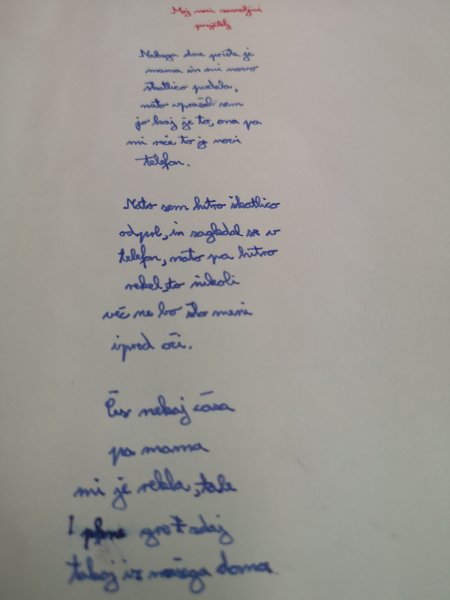 Moj novi
prijatelj
Nekega dne prišla je
mama in mi novo
škatlico podala,
nato vprašal sem
jo kaj je to, ona pa
mi reče to je novi
telefon.
Nato sem hitro škatlico
odprl, in zagledal se v
telefon, nato pa hitro
rekel, to nikoli
več ne bo šlo meni
izpred oči.
Čez nekaj časa
pa mama
mi je rekla, tale
gre ž zdaj
takoj iz našega doma